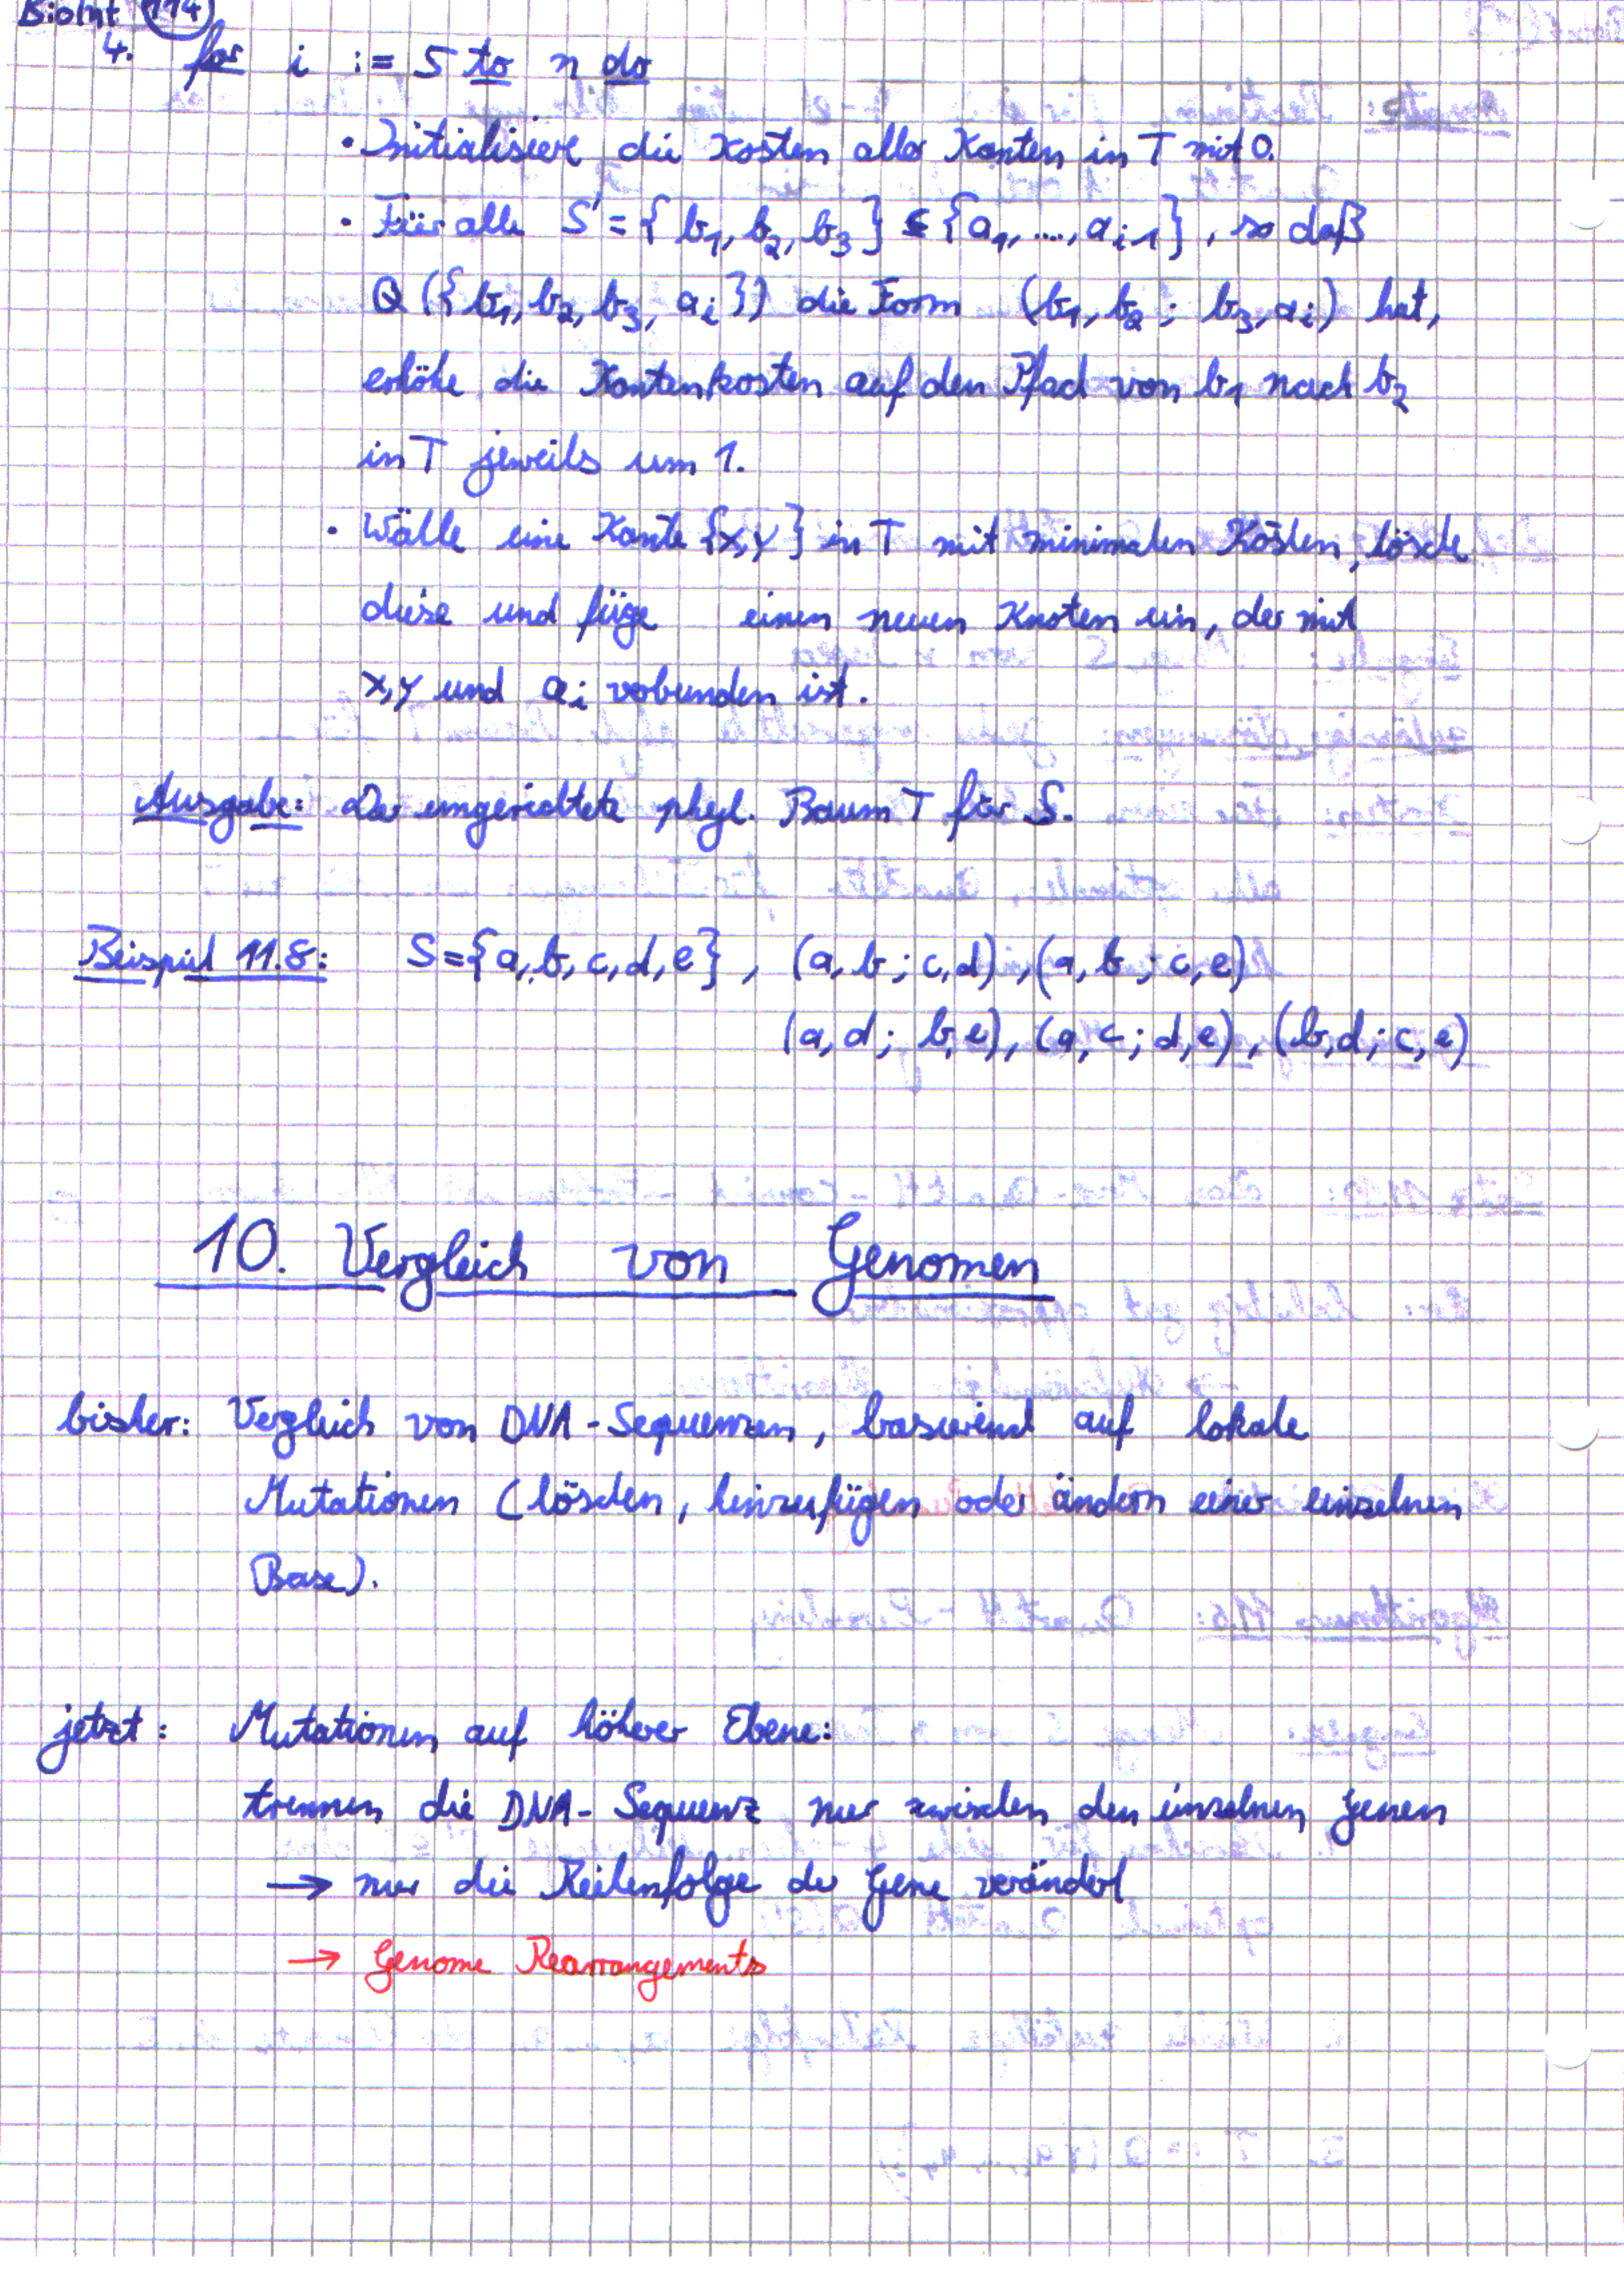 BioInf 114
4. for i := 5 to n do
• Initialisiere die Kosten aller Kanten in T mit 0.
• Für alle S' = { b₁, b₂, b₃ } ⊆ { a₁, ..., a i-1 }, so daß
Q ({ b₁, b₂, b₃, a i }) die Form (b₁, b₂ ; b₃, a i) hat,
erhöhe die Kantenkosten auf den Pfad von b₁ nach b₂
in T jeweils um 1.
• Wälle eine Kante {x,y} in T mit minimalen Kosten, lösche
diese und füge einen neuen Knoten ein, der mit
x,y und a i verbunden ist.
Ausgabe: Der ungerichtete phyl. Baum T für S.
Beispiel 11.8: S = {a, b, c, d, e} , (a, b ; c, d) , (a, b ; c, e)
(a, d ; b, e), (a, c ; d, e) , (b, d ; c, e)
10. Vergleich von Genomen
bisher: Vergleich von DNA - Sequenzen, basierend auf lokale
Mutationen (löschen, hinzufügen oder ändern einer einzelnen
Base).
jetzt: Mutationen auf höherer Ebene:
trennen die DNA - Sequenz nur zwischen den einzelnen Genen
→ nur die Reihenfolge der Gene verändert
→ Genome Rearrangements